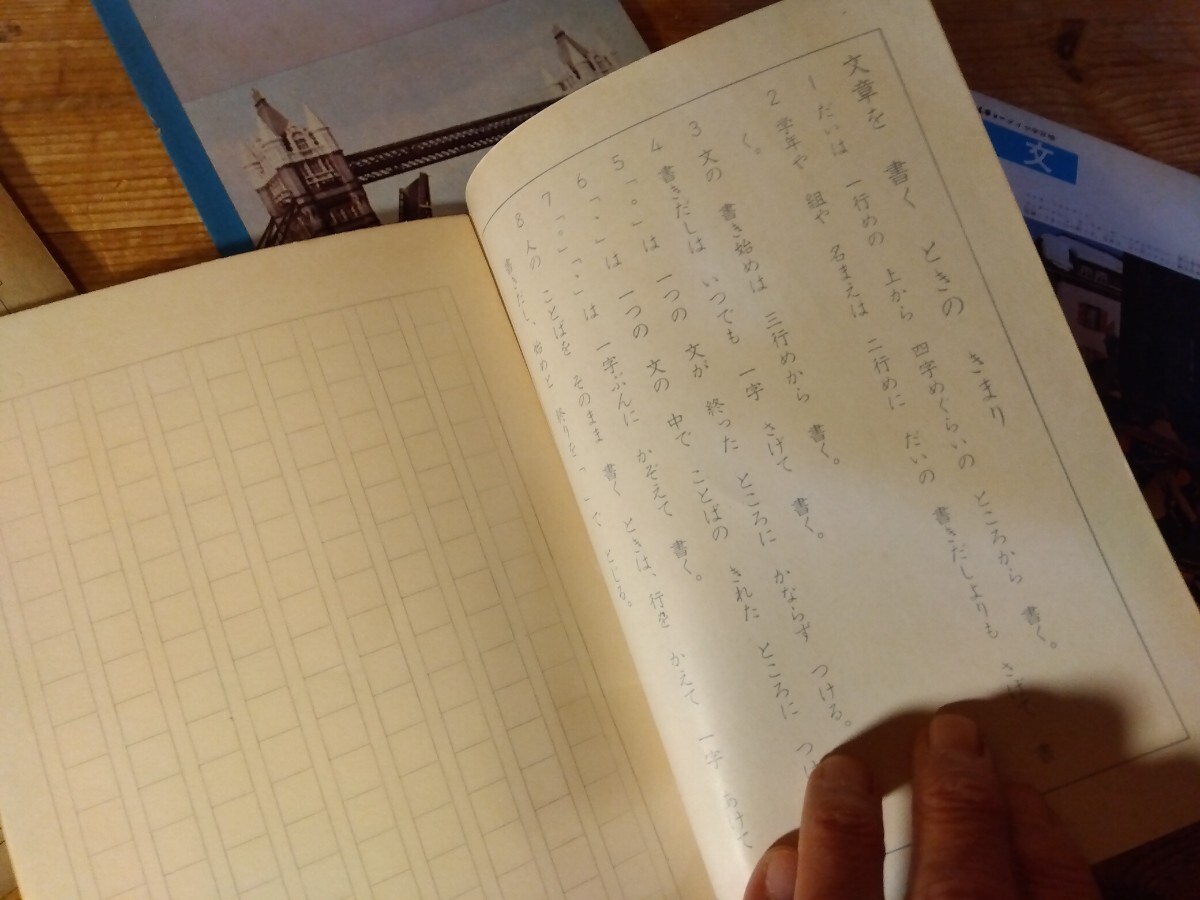 文章を 書く ときの きまり
1 だいは 一行めの 上から 四字めくらいの ところから 書く。
2 学年や 組や 名まえは 二行めに だいの 書きだしよりも さげて 書
く。
3 文の 書き始めは 三行めから 書く。
4 書きだしは いつでも 一字 さげて 書く。
5 「。」は 一つの 文が 終った ところに かならず つける。
6 「、」は 一つの 文の 中で ことばの きれた ところに つけ
7 「。」「、」は 一字ぶんに かぞえて 書く。
8 人の ことばを そのまま 書く ときは、行を かえて 一字 あけて
書きだし、始めと 終りを「 」で とじる。
文